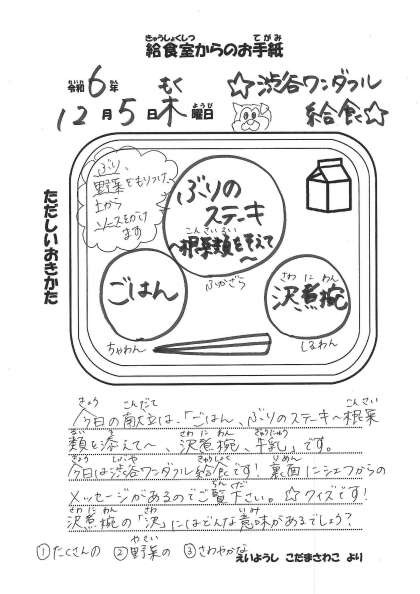 きゅうしょくしつ てがみ
給食室からのお手紙
れいわ ねん もく
令和6年 ☆渋谷ワンダフル
12月5日木曜日 給食☆
ようび
ただしいおきかた
ぶり、
野菜をもりつけ、
上から
ソースをかけ
ます
ぶりの
ステーキ
こんさいるい
〜根菜類を添えて
〜
ふかざら
ごはん
ちゃわん
さわ に わん
沢煮椀
しるわん
きょう こんだて こんさい
今日の献立は、「ごはん、ぶりのステーキ〜根菜
るい そ さわ に わん ぎゅうにゅう
類を添えて〜、沢煮椀、牛乳」です。
きょう しぶや きゅうしょく りめん
今日は渋谷ワンダフル給食です!裏面にシェフからの
らんくだ
メッセージがあるのでご覧下さい。☆クイズです!
さわ に わん さわ いみ
沢煮椀の「沢」にはどんな意味があるでしょう?
やさい
①たくさんの ②野菜の ③さわやかな
えいようし こだまさわこ より